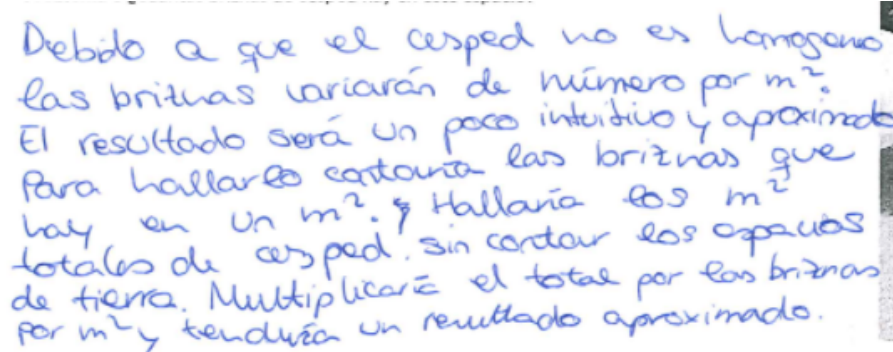 Debido a que el cesped no es homogeneo
las briznas variarán de número por m².
El resultado será un poco intuitivo y aproximado
Para hallarlo contaria las briznas que
hay en un m². y Hallaría los m²
totales de cesped sin contar los espacios
de tierra. Multiplicaría el total por las briznas
por m² y tendría un resultado aproximado.